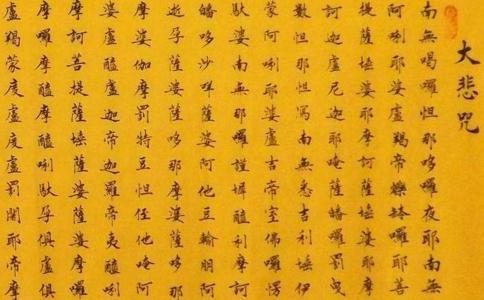 大悲咒
南無喝囉怛那哆囉夜耶南無
阿唎耶婆盧羯帝爍缽囉耶菩
提薩埵婆耶摩訶薩埵婆耶摩
訶迦盧尼迦耶唵薩皤囉罰曳
數怛那怛寫南無悉吉利埵伊
蒙阿唎耶婆盧吉帝室佛囉愣
馱婆南無那囉謹墀醯利摩訶
皤哆沙咩薩婆阿他豆輸朋阿
逝孕薩婆薩哆那摩婆薩哆那
摩婆伽摩罰特豆怛侄他唵阿
婆盧醯盧迦帝迦羅帝夷醯唎
摩訶菩提薩埵薩婆薩婆摩囉
摩囉摩醯摩醯唎馱孕俱盧俱
盧羯蒙度盧度盧罰闍耶帝摩